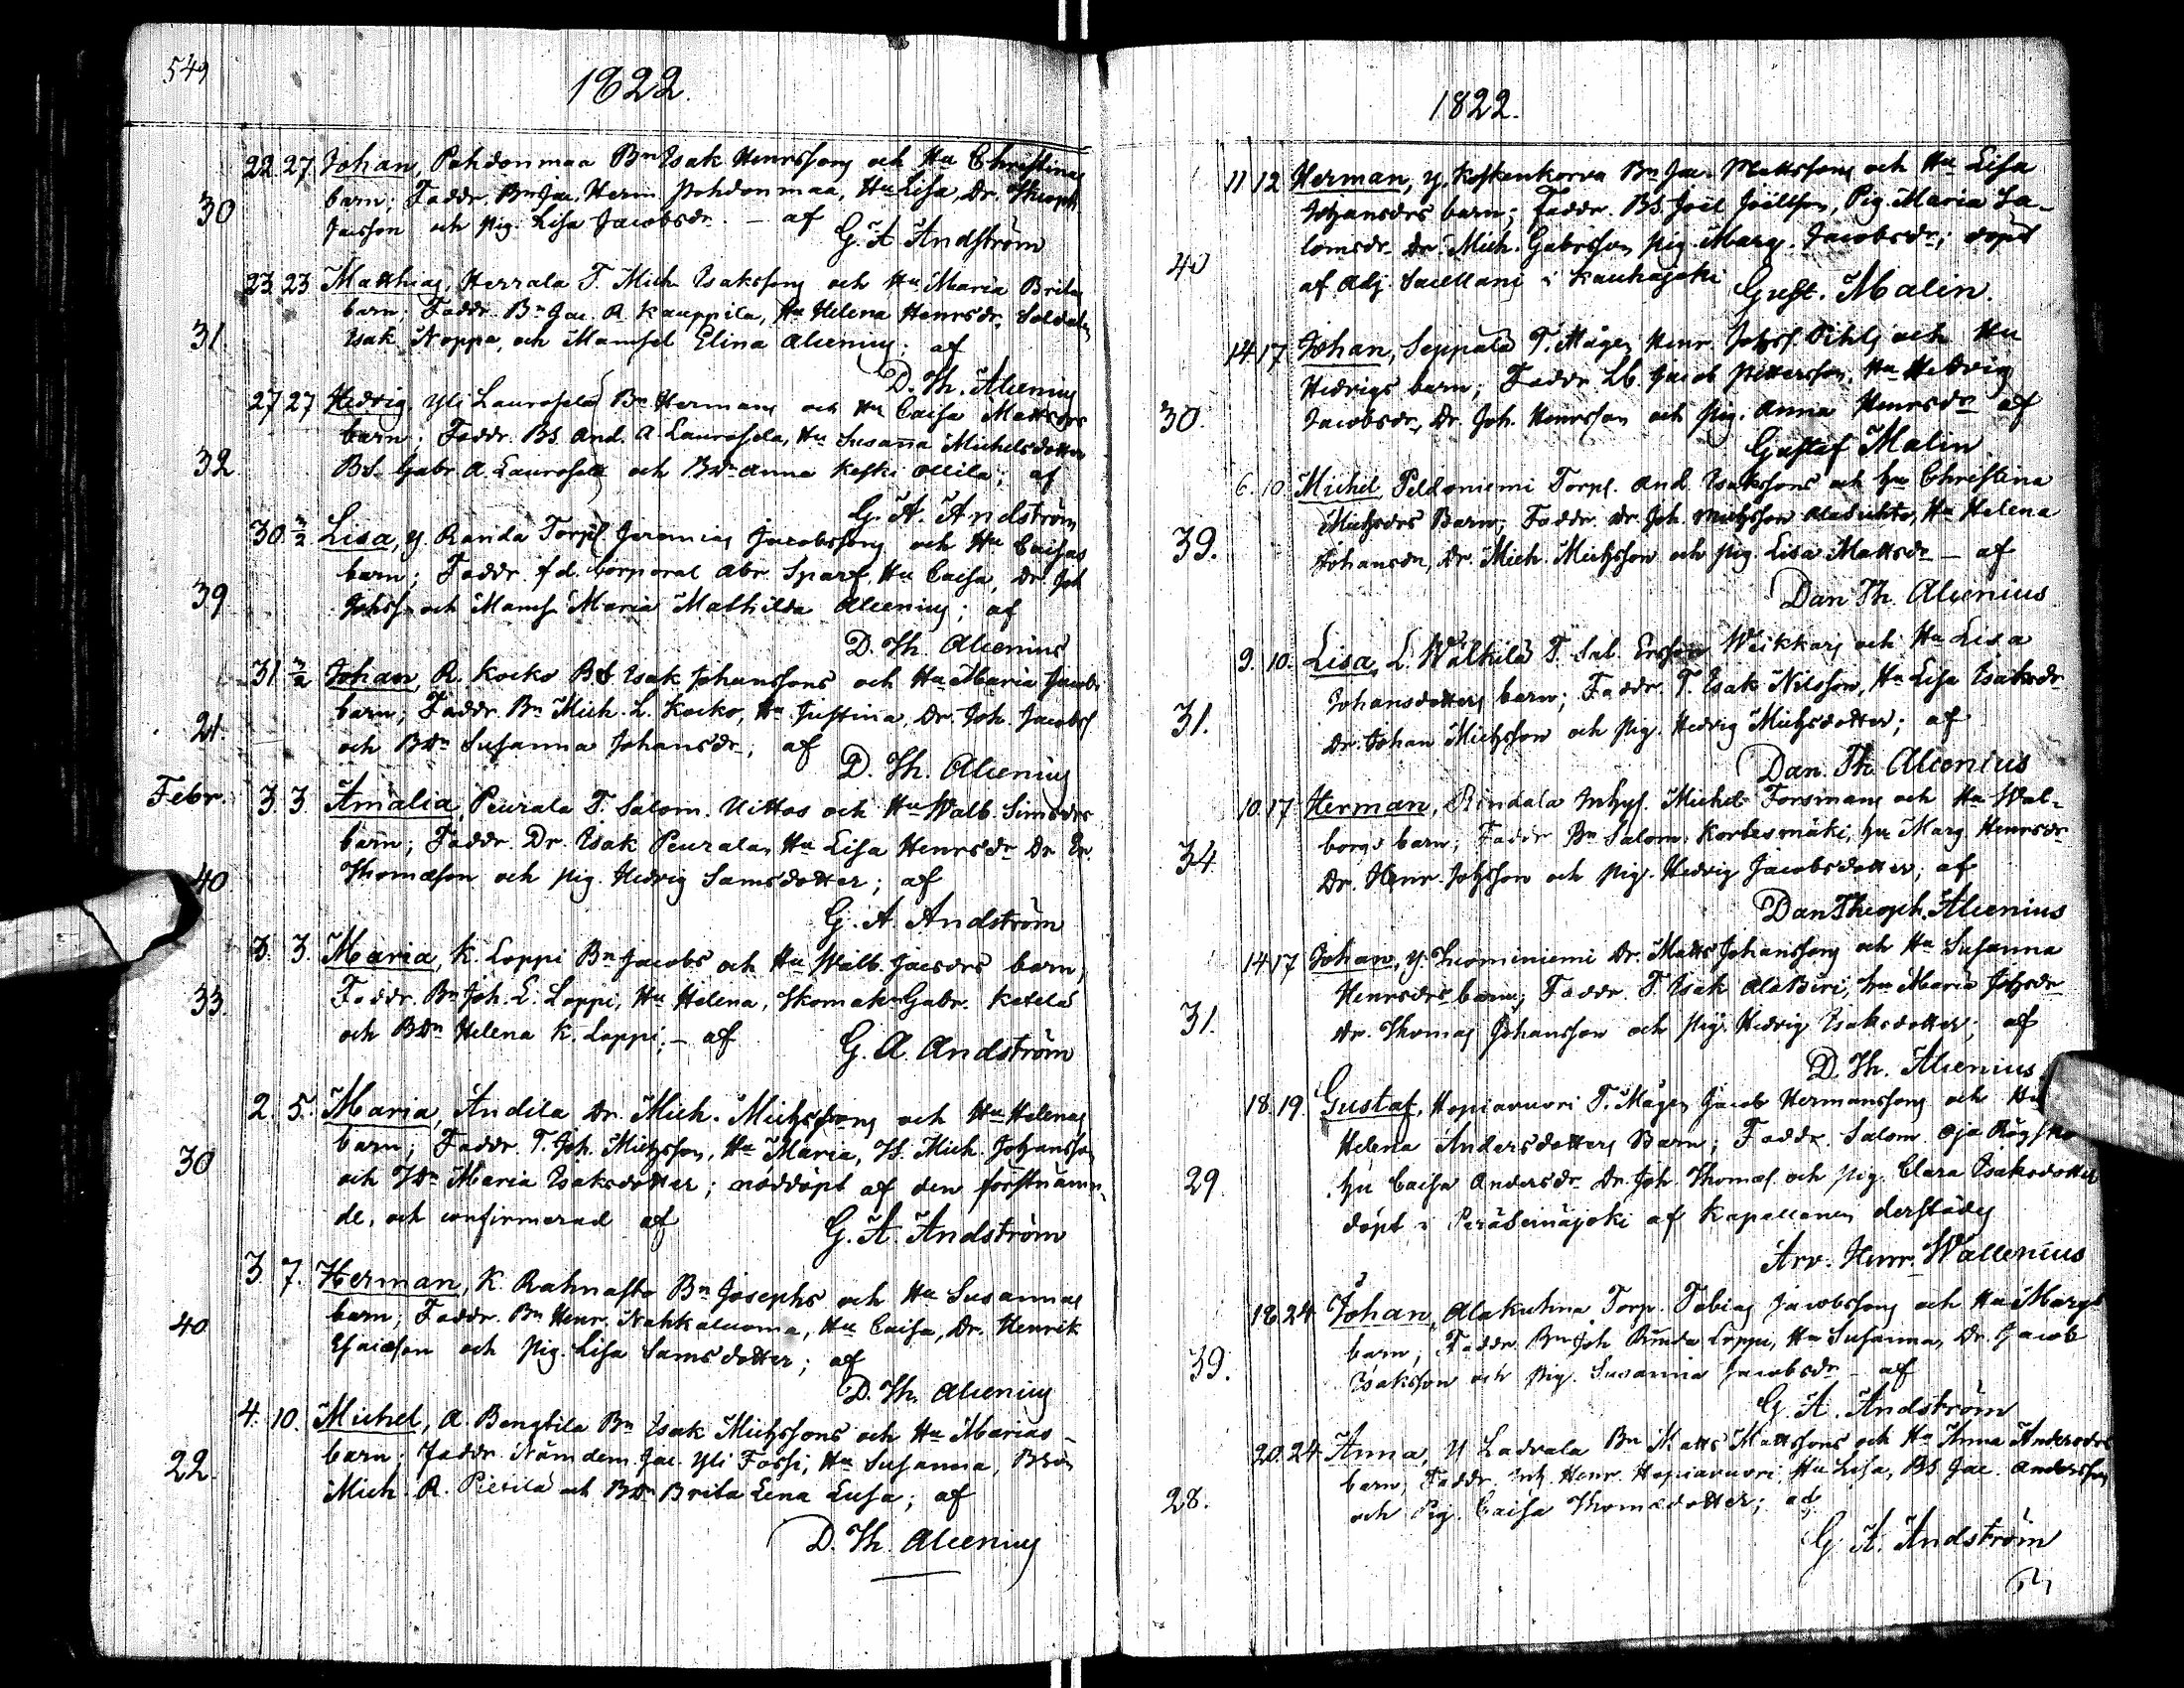 549
1822.
22. 27. Johan, Pohdonmaa Bn Isak Henrssons och Hu Christinas
30 barn; Faddr. Bn Jac. Herm. Pohdonmaa, Hu Lisa, Dr. Theoph.
Jacsson och Pig. Lisa Jacobsdr. – af
G. A. Andström
23. 23 Matthias, Herrala T. Mich. Isakssons och Hu Maria Britas
barn; Faddr. Bn Jac. A. Kauppila, Hu Helena Henrsdr, Soldaten
31. Isak Noppa, och Mamsel Elina Alcenius; af
D. Th. Alcenius
27 27 Hedvig, Yli Laurosela Bn Hermans och Hu Caisa Mattsdrs
barn; Faddr. BS. And. A. Laurosela, Hu Susanna Michelsdotter
32 BS. Gabr. A. Laurosela och BDr Anna Keski Ollila; af
G. A. Andström
30. 2/2 Lisa, Y. Randa Torp. Jeremias Jacobssons och Hu Caisas
barn; Faddr. f.d. Corporal Abr. Sparf, Hu Caisa, Dr. Joh.
39 Johss. och Mams. Maria Mathilda Alcenius; af
D. Th. Alcenius
31. 2/2 Johan, R. Kocko BS Isak Johanssons och Hu Maria Jacobs
barn; Faddr. Bn Mich. L. Kocko, Hu Justina, Dr. Joh. Jacobss.
21. och BDr Susanna Johansdr; af
D. Th. Alcenius
Febr. 3. 3. Amalia, Peurala T. Salom. Uittos och Hu Walb. Simsdrs
barn; Faddr. Dr. Isak Peurala, Hu Lisa Henrsdr Dr. Er.
40 Thomasson och Pig. Hedvig Samsdotter; af
G. A. Andström
3. 3. Maria, K. Loppi Bn Jacobs och Hu Walb. Jacsdrs barn;
33. Faddr. Bn Joh. L. Loppi, Hu Helena, Skomak. Gabr. Ketela
och BDr Helena K. Loppi; – af
G. A. Andström
2. 5. Maria, Andila Dr. Mich. Michssons och Hu Helenas
30 barn; Faddr. T. Joh. Michsson, Hu Maria, TS. Mich. Johansson
och TDr Maria Isaksdotter; nöddöpt af den förstnämn-
de, och confirmerad af
G. A. Andström
3 7. Herman, K. Rahnasto Bn Josephs och Hu Susannas
40 barn; Faddr. Bn Henr. Nahkaluoma, Hu Caisa, Dr. Henrik
Esaiasson och Pig. Lisa Samsdotter; af
D. Th. Alcenius
4. 10. Michel, A. Bengtila Bn Isak Michssons och Hu Marias
22. barn; Faddr. Nämdem. Jac. Yli Fossi, Hu Susanna, BSon
Mich. R. Pietila och BDr Brita Lena Lusa; af
D. Th. Alcenius
1822.
11 12 Herman, Y. Koskenkorva Bn Jac. Mattssons och Hu Lisa
Johansdrs barn; Faddr. BS. Joel Joëllson, Pig. Maria Sa-
40 lomsdr. Dr. Mich. Gabrsson Pig. Marg. Jacobsdr; döpt
af Adj. Sacellani i Kauhajoki
Gust. Malin.
14. 17. Johan, Seppala T. Mågen Henr. Johss. Pihls och Hu
Hedvigs barn; Faddr. Lb. Jacob Pettersson, Hu Hedvig
30. Jacobsdr, Dr. Joh. Henrsson och Pig. Anna Henrsdr af
Gustaf Malin
6. 10 Michel, Peldoniemi Torp. And. Isakssons och Hu Christina
Michsdrs Barn; Faddr. Dr. Joh. Michsson Alasuhto, Hu Helena
39. Johansdr, Dr. Mich. Michsson och Pig. Lisa Mattsdr – af
Dan. Th. Alcenius
9. 10. Lisa, L. Wälkilä T. Sal. Ersson Weikkas och Hu Lisa
Johansdotters barn; Faddr. T. Isak Nilsson, Hu Lisa Isaksdr
31. Dr. Johan Michsson och Pig. Hedvig Michsdotter; af
Dan. Th. Alcenius
10. 17 Herman, Rindala Inhys. Michel Forsmans och Hu Wal-
34 borgs barn; Faddr. Bn Salom. Kortesmäki, Hu Marg. Henrsdr
Dr. Henr. Johsson och Pig. Hedvig Jacobsdotter; af
Dan Theoph. Alcenius
14 17 Johan, Y. Luominiemi Dr. Matts Johanssons och Hu Susanna
Henrsdrs barn; Faddr. T. Isak AlaBiri, Hu Maria Johsdr
31. Dr. Thomas Johansson och Pig. Hedvig Isaksdotter; af
D. Th. Alcenius
18. 19. Gustaf, Hopiavuori T. Mågen Jacob Hermanssons och Hu
Helena Andersdotters Barn; Faddr. Salom. Oja Rågsko
29 Hu Caisa Andersdr Dr. Joh. Thomas. och Pig. Clara Isaksdotter
döpt i Peräseinäjoki af Kapellanen derstädes
Arv. Henr. Wallenius
18. 24 Johan, Alakutina Torp. Tobias Jacobssons och Hu Margs
39. barn; Faddr. Bn Joh. Runda Loppi, Hu Susanna, Dr. Jacob
Isaksson och Pig. Susanna Jacobsdr – af
G. A. Andström
20. 24. Anna, Y. Ladvala Bn Matts Mattssons och Hu Anna Andersdrs
28. barn; Faddr. Inh. Henr. Hopiavuori, Hu Lisa, BS Jac. Andersson
och Pig. Caisa Thomasdotter; af
G. A. Andström